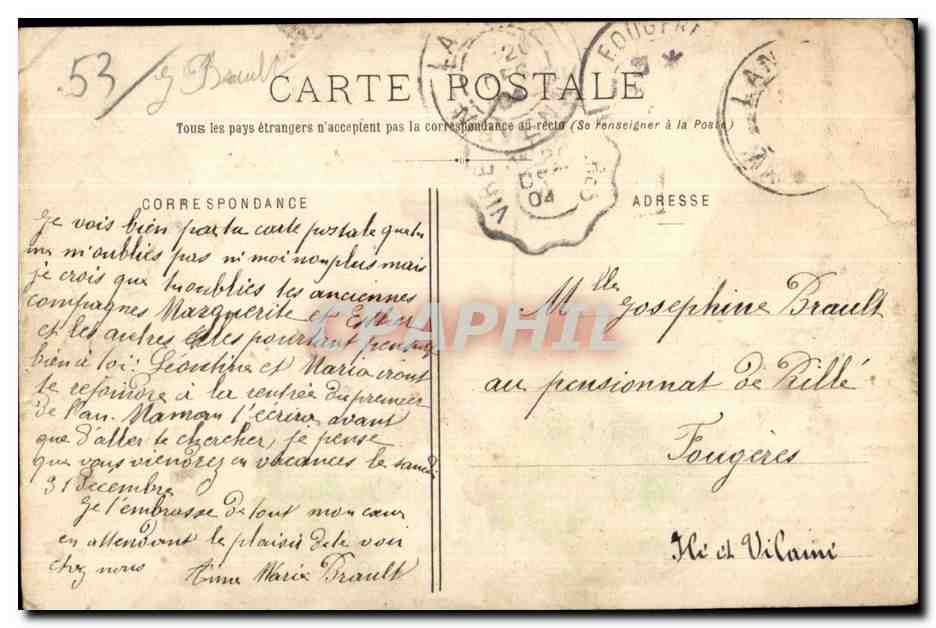 53 / J Brault
CARTE POSTALE
Tous les pays étrangers n'acceptent pas la correspondance au recto (Se renseigner à la Poste)
CORRESPONDANCE
Je vois bien par ta carte postale que tu
ne m'oublies pas ni moi non plus mais
je crois que tu oublies tes anciennes
compagnes Marguerite et Ester
et les autres elles pourtant pensent
bien à toi: Léontine et Maria iront
te rejoindre à la rentrée du premier
de l'an. Maman t'écrira avant
que d'aller te chercher, je pense
que vous viendrez en vacances le samdi
31 decembre
Je t'embrasse de tout mon cœur
en attendant le plaisir de te voir
chez nous
Anna Maria Brault
ADRESSE
Mlle Josephine Brault
au pensionnat de Rillé
Fougères
Ile et Vilaine
LA
20
FOUGÈRE
VIRE
04
LAN
CPAPHIL